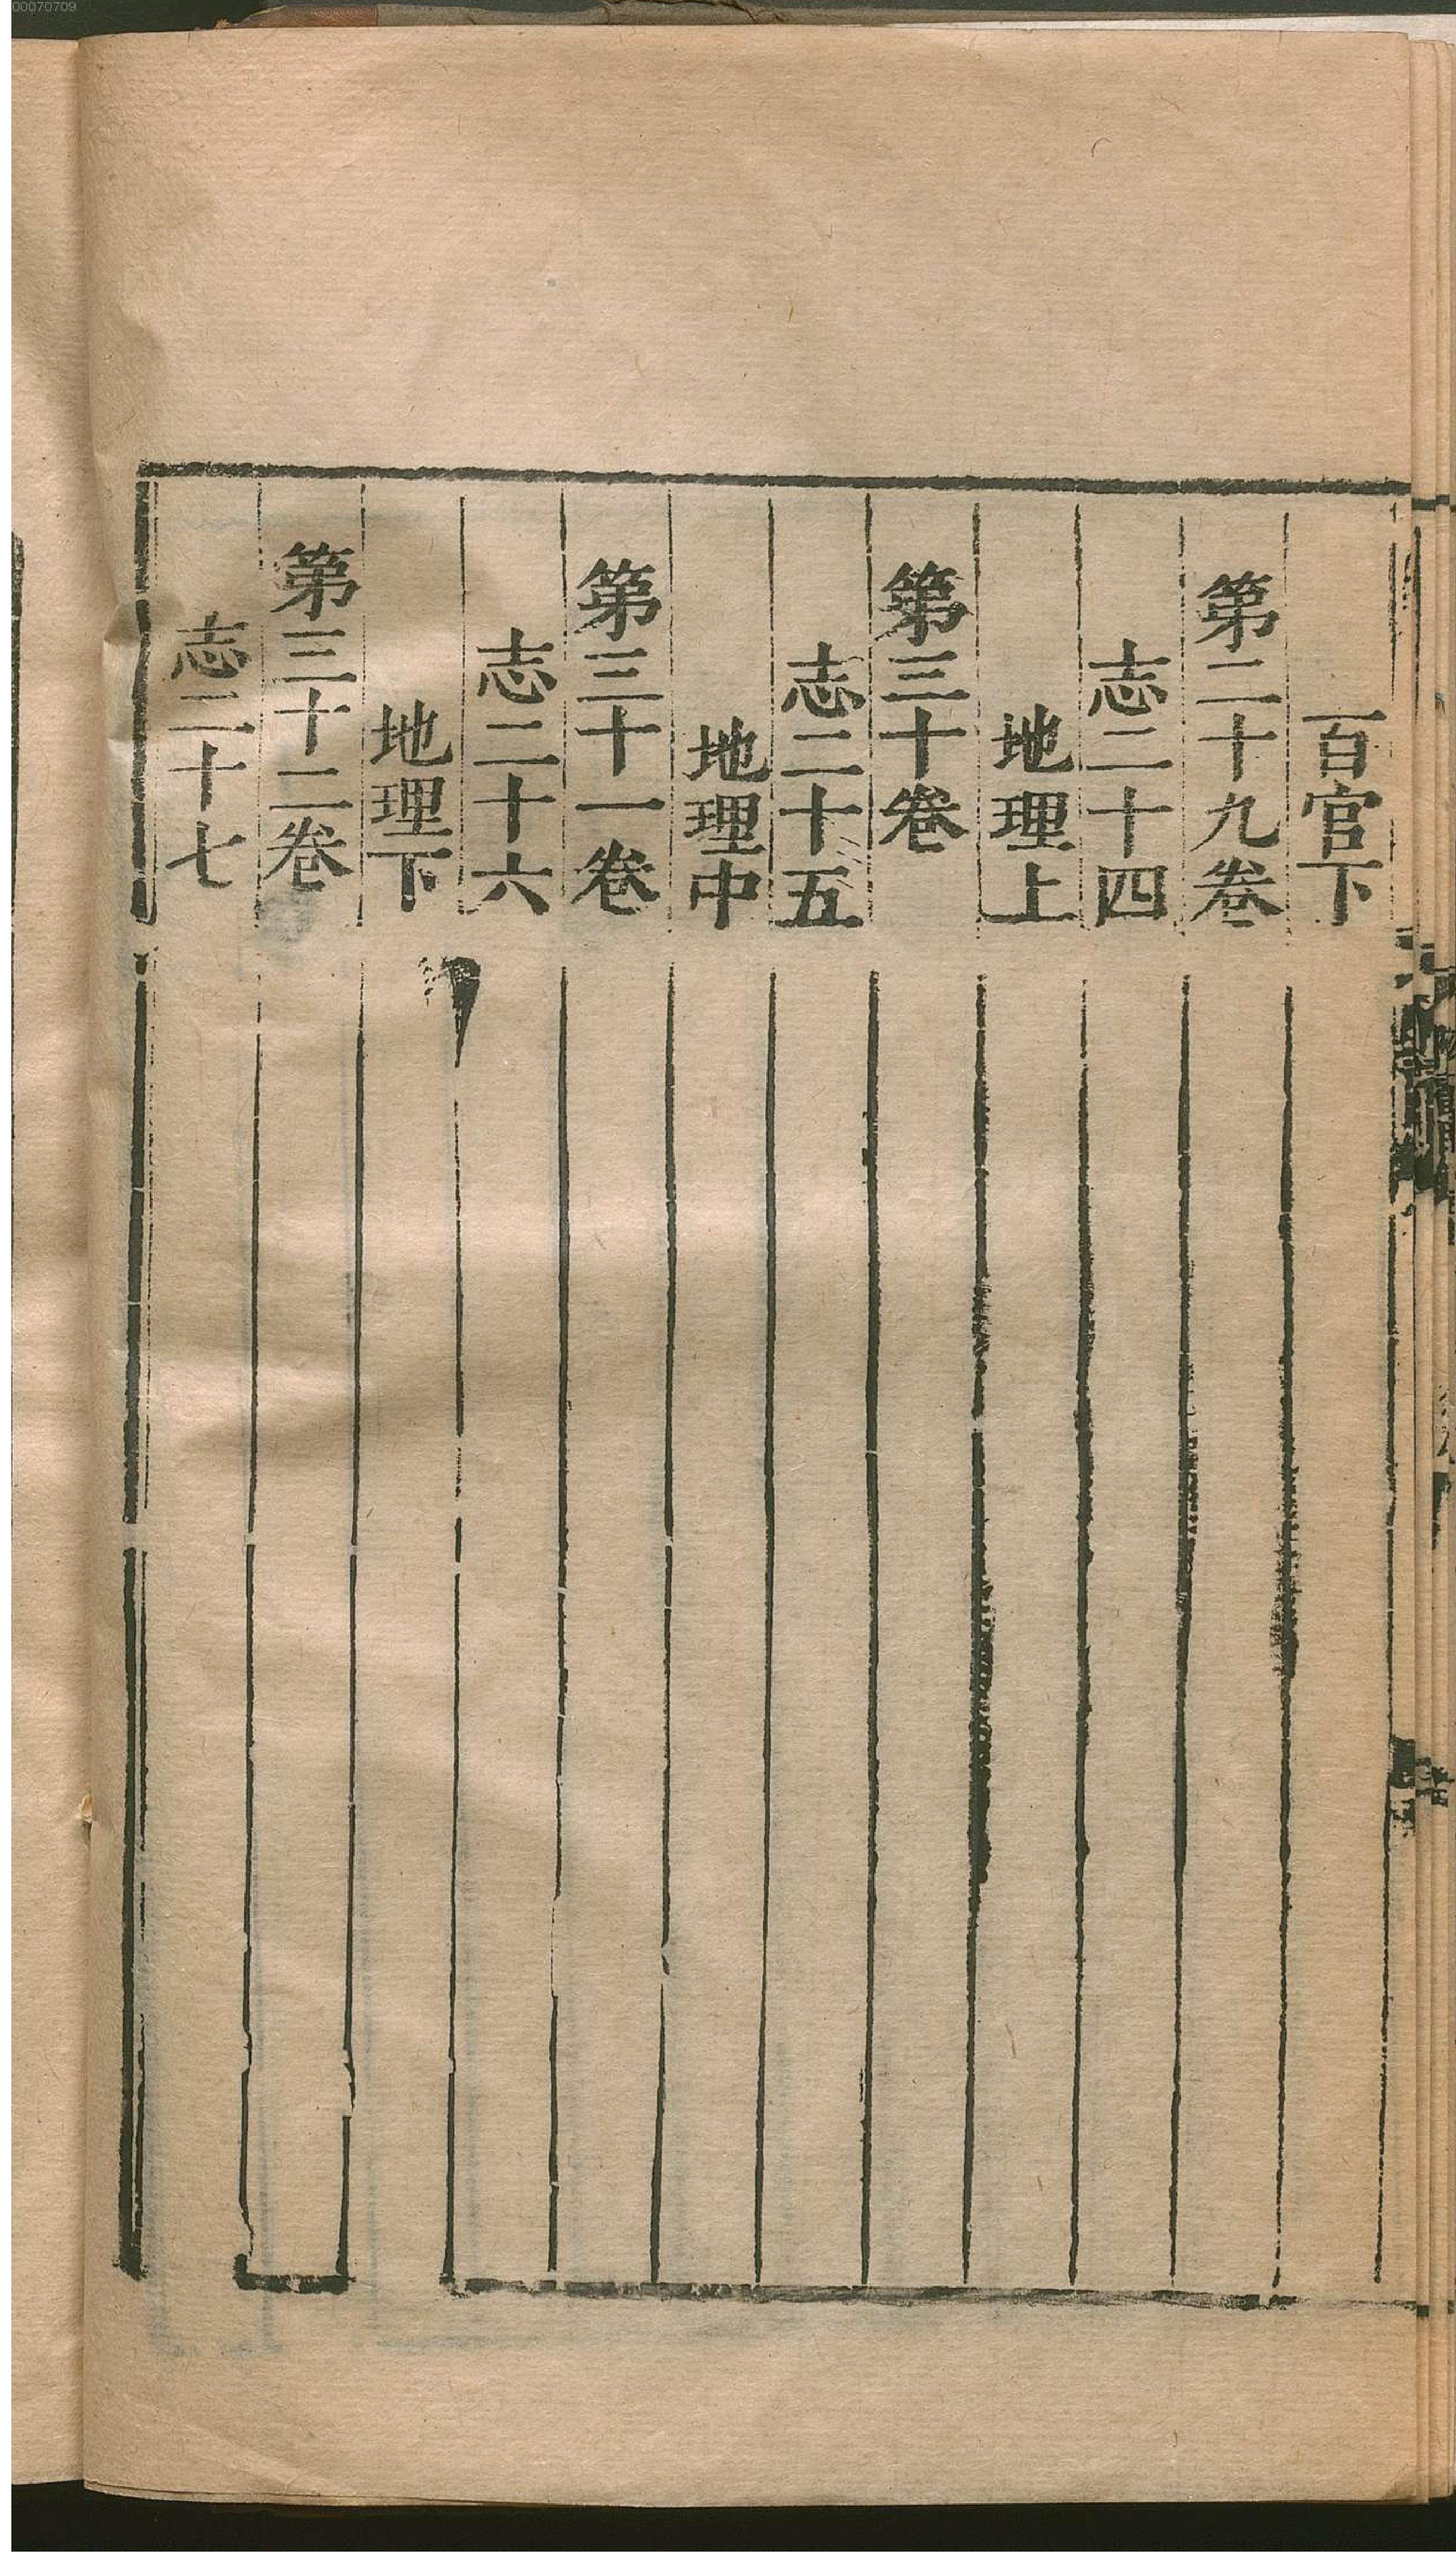 00070709
百官下
第二十九卷
志二十四
地理上
第三十卷
志二十五
地理中
第三十一卷
志二十六
地理下
第三十二卷
志二十七